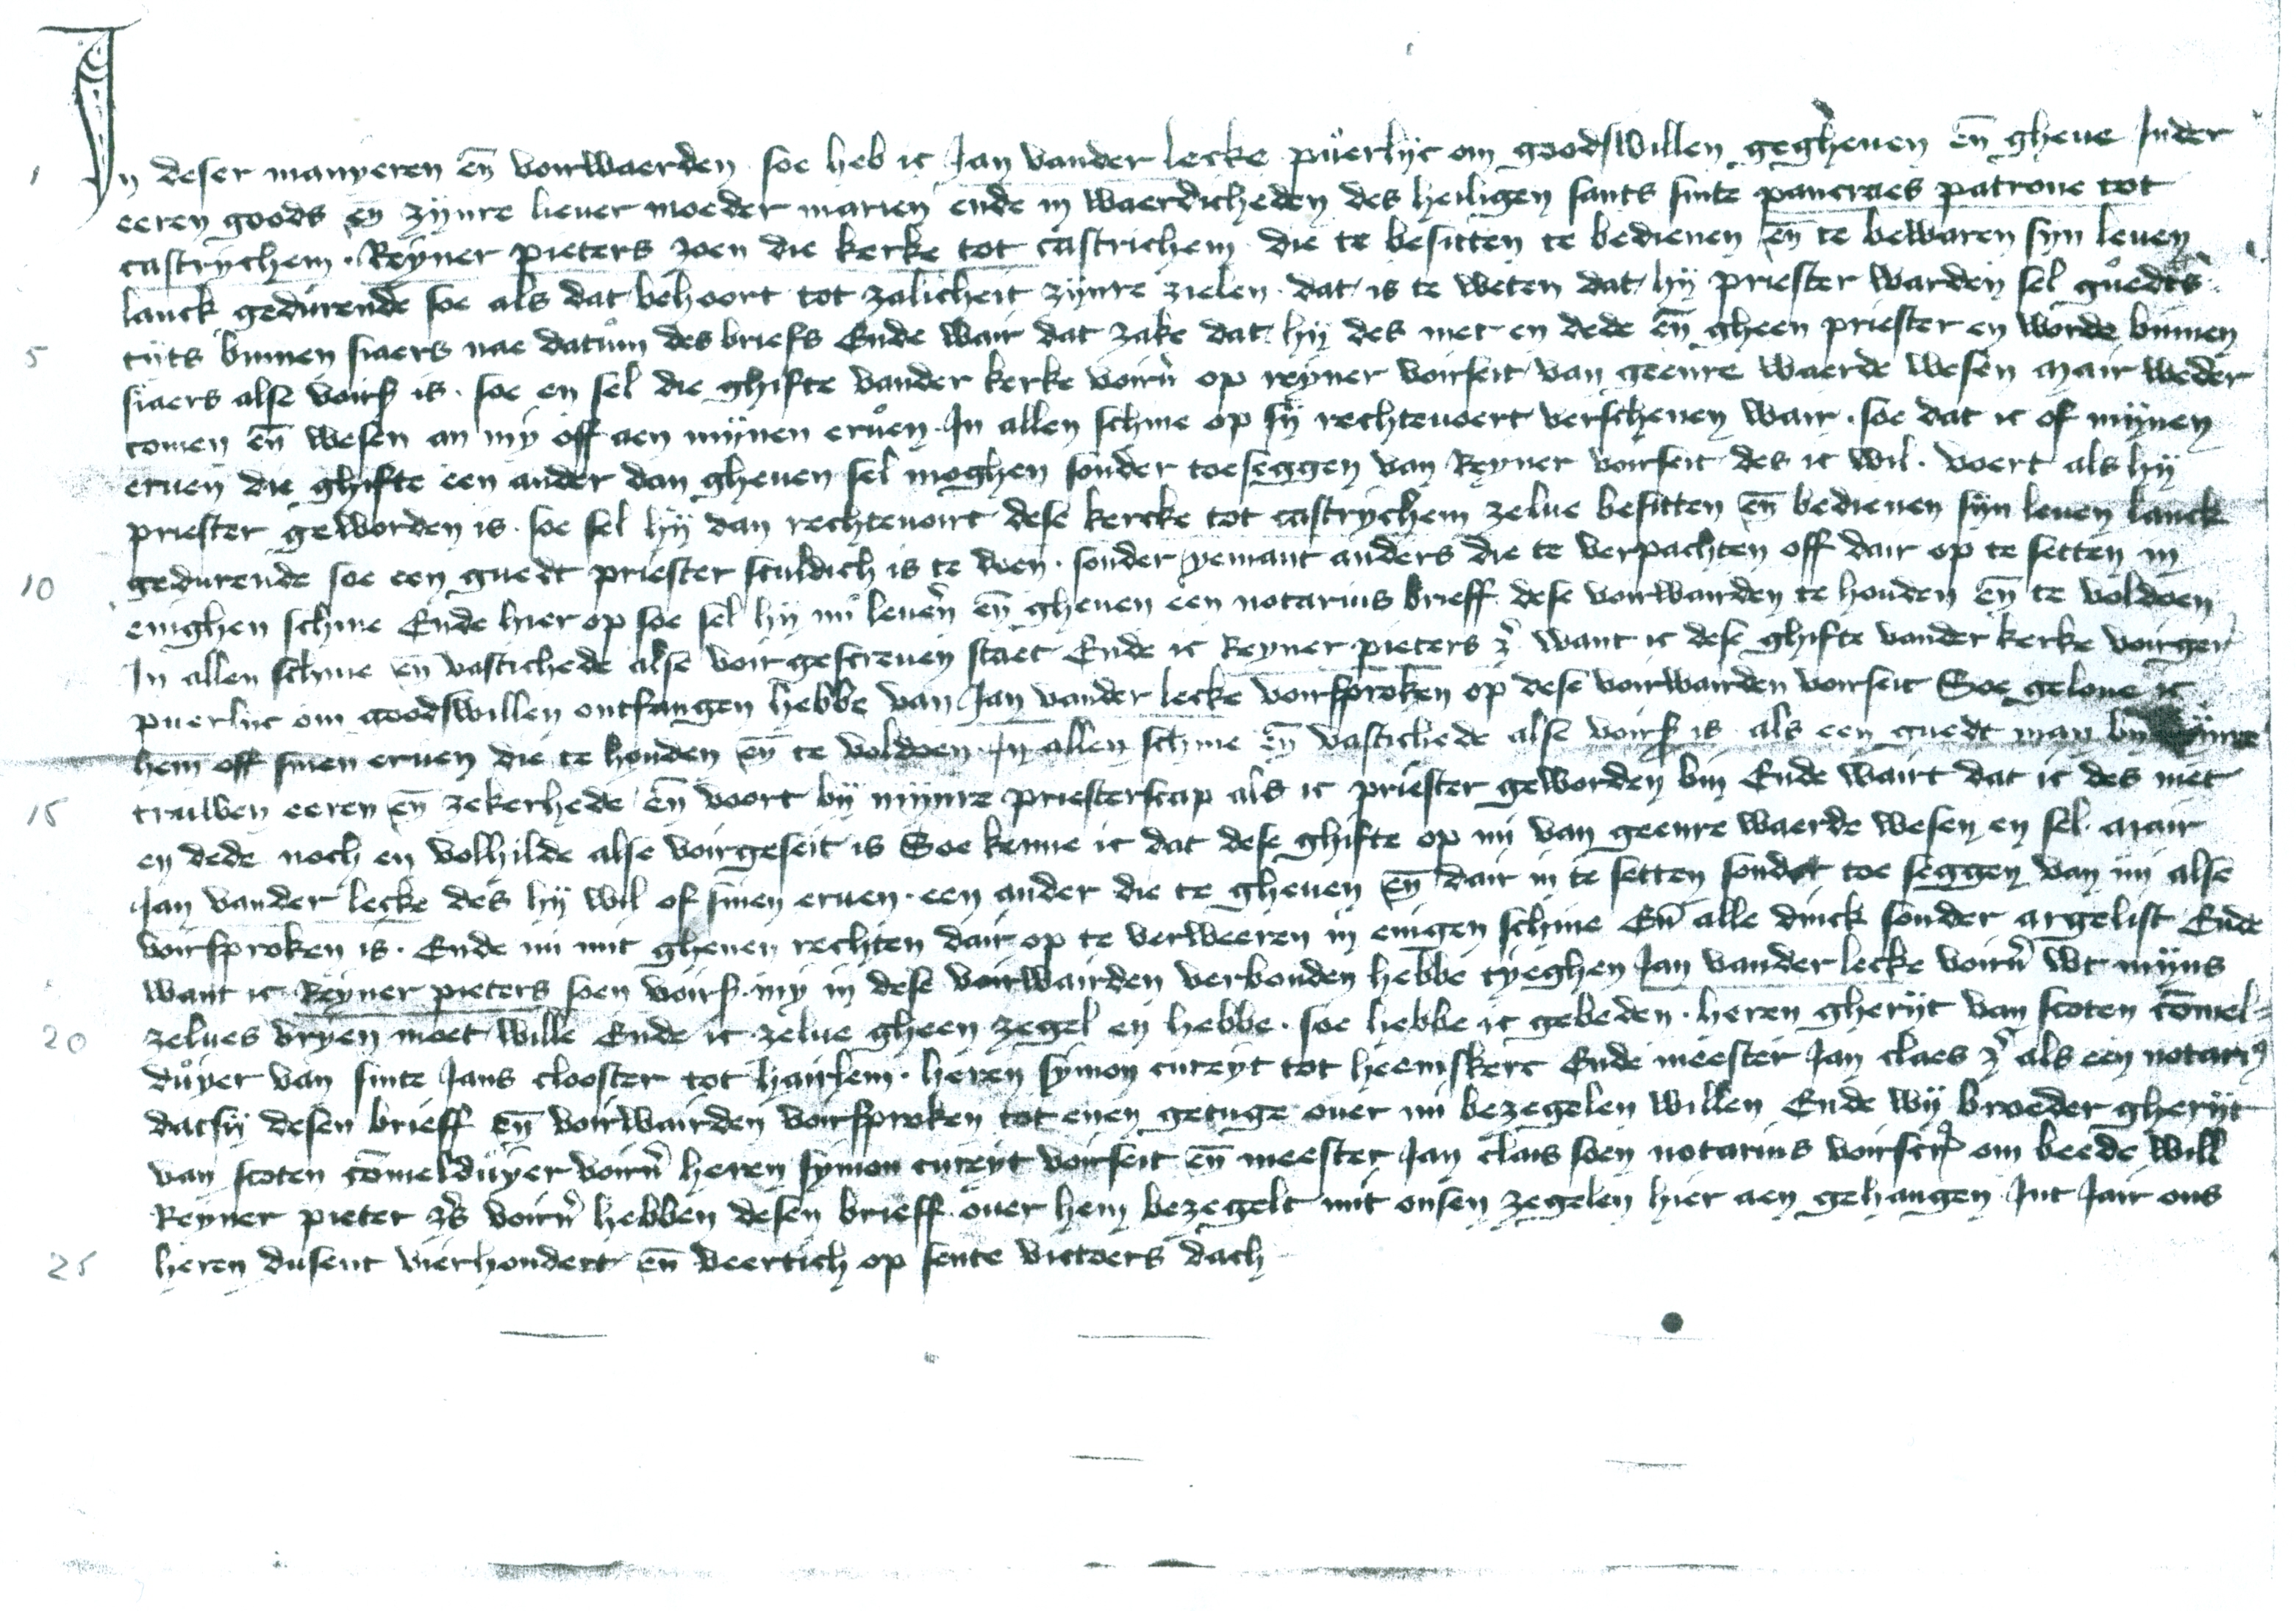 1 In deser manyeren en̄ vorwaerden soe heb ic Jan vander lecke puerlijc om goodswillen gegheuen en̄ gheue Inder
eeren goods en̄ zijnre lieuer moeder marien ende in waerdicheden des heiligen sants sinte pancraes patrone tot
castrychem . Reyner pieters zoen die kerke tot castrichem die te besitten te bedienen en̄ te bewaren syn leuen
lanck gedurende soe als dat behoort tot zalicheit zijnre zielen . dat is te weten dat hij priester warden sel guedts
5 tijts binnen siaers nae datum des briefs Ende wair dat zake dat hij des niet en dede en̄ gheen priester en worde binnen
siaers alse voirs is . soe en sel die ghifte vander kerke voirn̄ op reyner voirseit van geenre waerde wesen mair weder
comen en̄ wesen an my off aen mijnen eruen In allen schine op sij rechteuoert verschenen wair . soe dat ic of mijnen
eruen die ghifte een ander dan gheuen sel moghen sonder toeseggen van Reyner voirseit des ic wil . voert als hij
priester geworden is . soe sel hij dan rechteuoirt dese kercke tot castrychem zelue besitten en̄ bedienen sijn leuen lanck
10 gedurende soe een guedt priester sculdich is te doen . sonder yemant anders die te verpachten off dair op te setten in
enighen schine Ende hier op soe sel hij mi leuen̄ en̄ gheuen een notarius brieff dese voirwairden te houden en̄ te voldoen
In allen schine en̄ vastichede alse voirgescreuen staet Ende ic Reyner pieters z̄ want ic dese ghifte vander kerke voirgen̄
puerlijc om goodswillen ontfangen hebbe van Jan vander lecke voirsproken op dese voirwairden voirseit Soe geloue ic
hem off sinen eruen die te houden en̄ te voldoen In allen schine en̄ vastichede alse voirs is als een guedt man bij mijnre
15 truwen eeren en̄ zekerhede en̄ voort bij mijnre priesterscap als ic priester geworden bin Ende wairt dat ic des niet
en dede noch en volhilde alse voirgeseit is Soe kenne ic dat dese ghifte op mi van geenre waerde wesen en sel . mair
Jan vander lecke des hij wil of sinen eruen . een ander die te gheuen en̄ dair in te setten sonder toe seggen van mi alse
voirsproken is . Ende mi mit ghenen rechten dair op te verweeren in enigen schine En̄ alle dinck sonder argelist Ende
want ic Reyner pieters soen voirs . my in dese voirwairden verbonden hebbe tyeghen Jan vander lecke voirn̄ wt mijns
20 zelues vryen moet wille Ende ic zelue gheen zegel en hebbe . soe hebbe ic gebeden . heren gherijt van scoten co̅mel=
duyer van sinte Jans clooster tot hairlem . heren symon cureyt tot heemskerc Ende meester Jan claes z̄ als een notari9
dat sij desen brieff en̄ voirwairden voirsproken tot enen getuge ouer mi bezegelen willen Ende wij broeder gherijt
van scoten co̅melduyer voirn̄ heren symon cureyt voirseit en̄ meester Jan claes soen notarius voirscr̄ om beede will
Reyner pieter z̄s voirn̄ hebben desen brieff ouer hem bezegelt mit onsen zegelen hier aen gehangen Int Jair ons
25 heren dusent vierhondert en̄ veertich op sente victoers dach